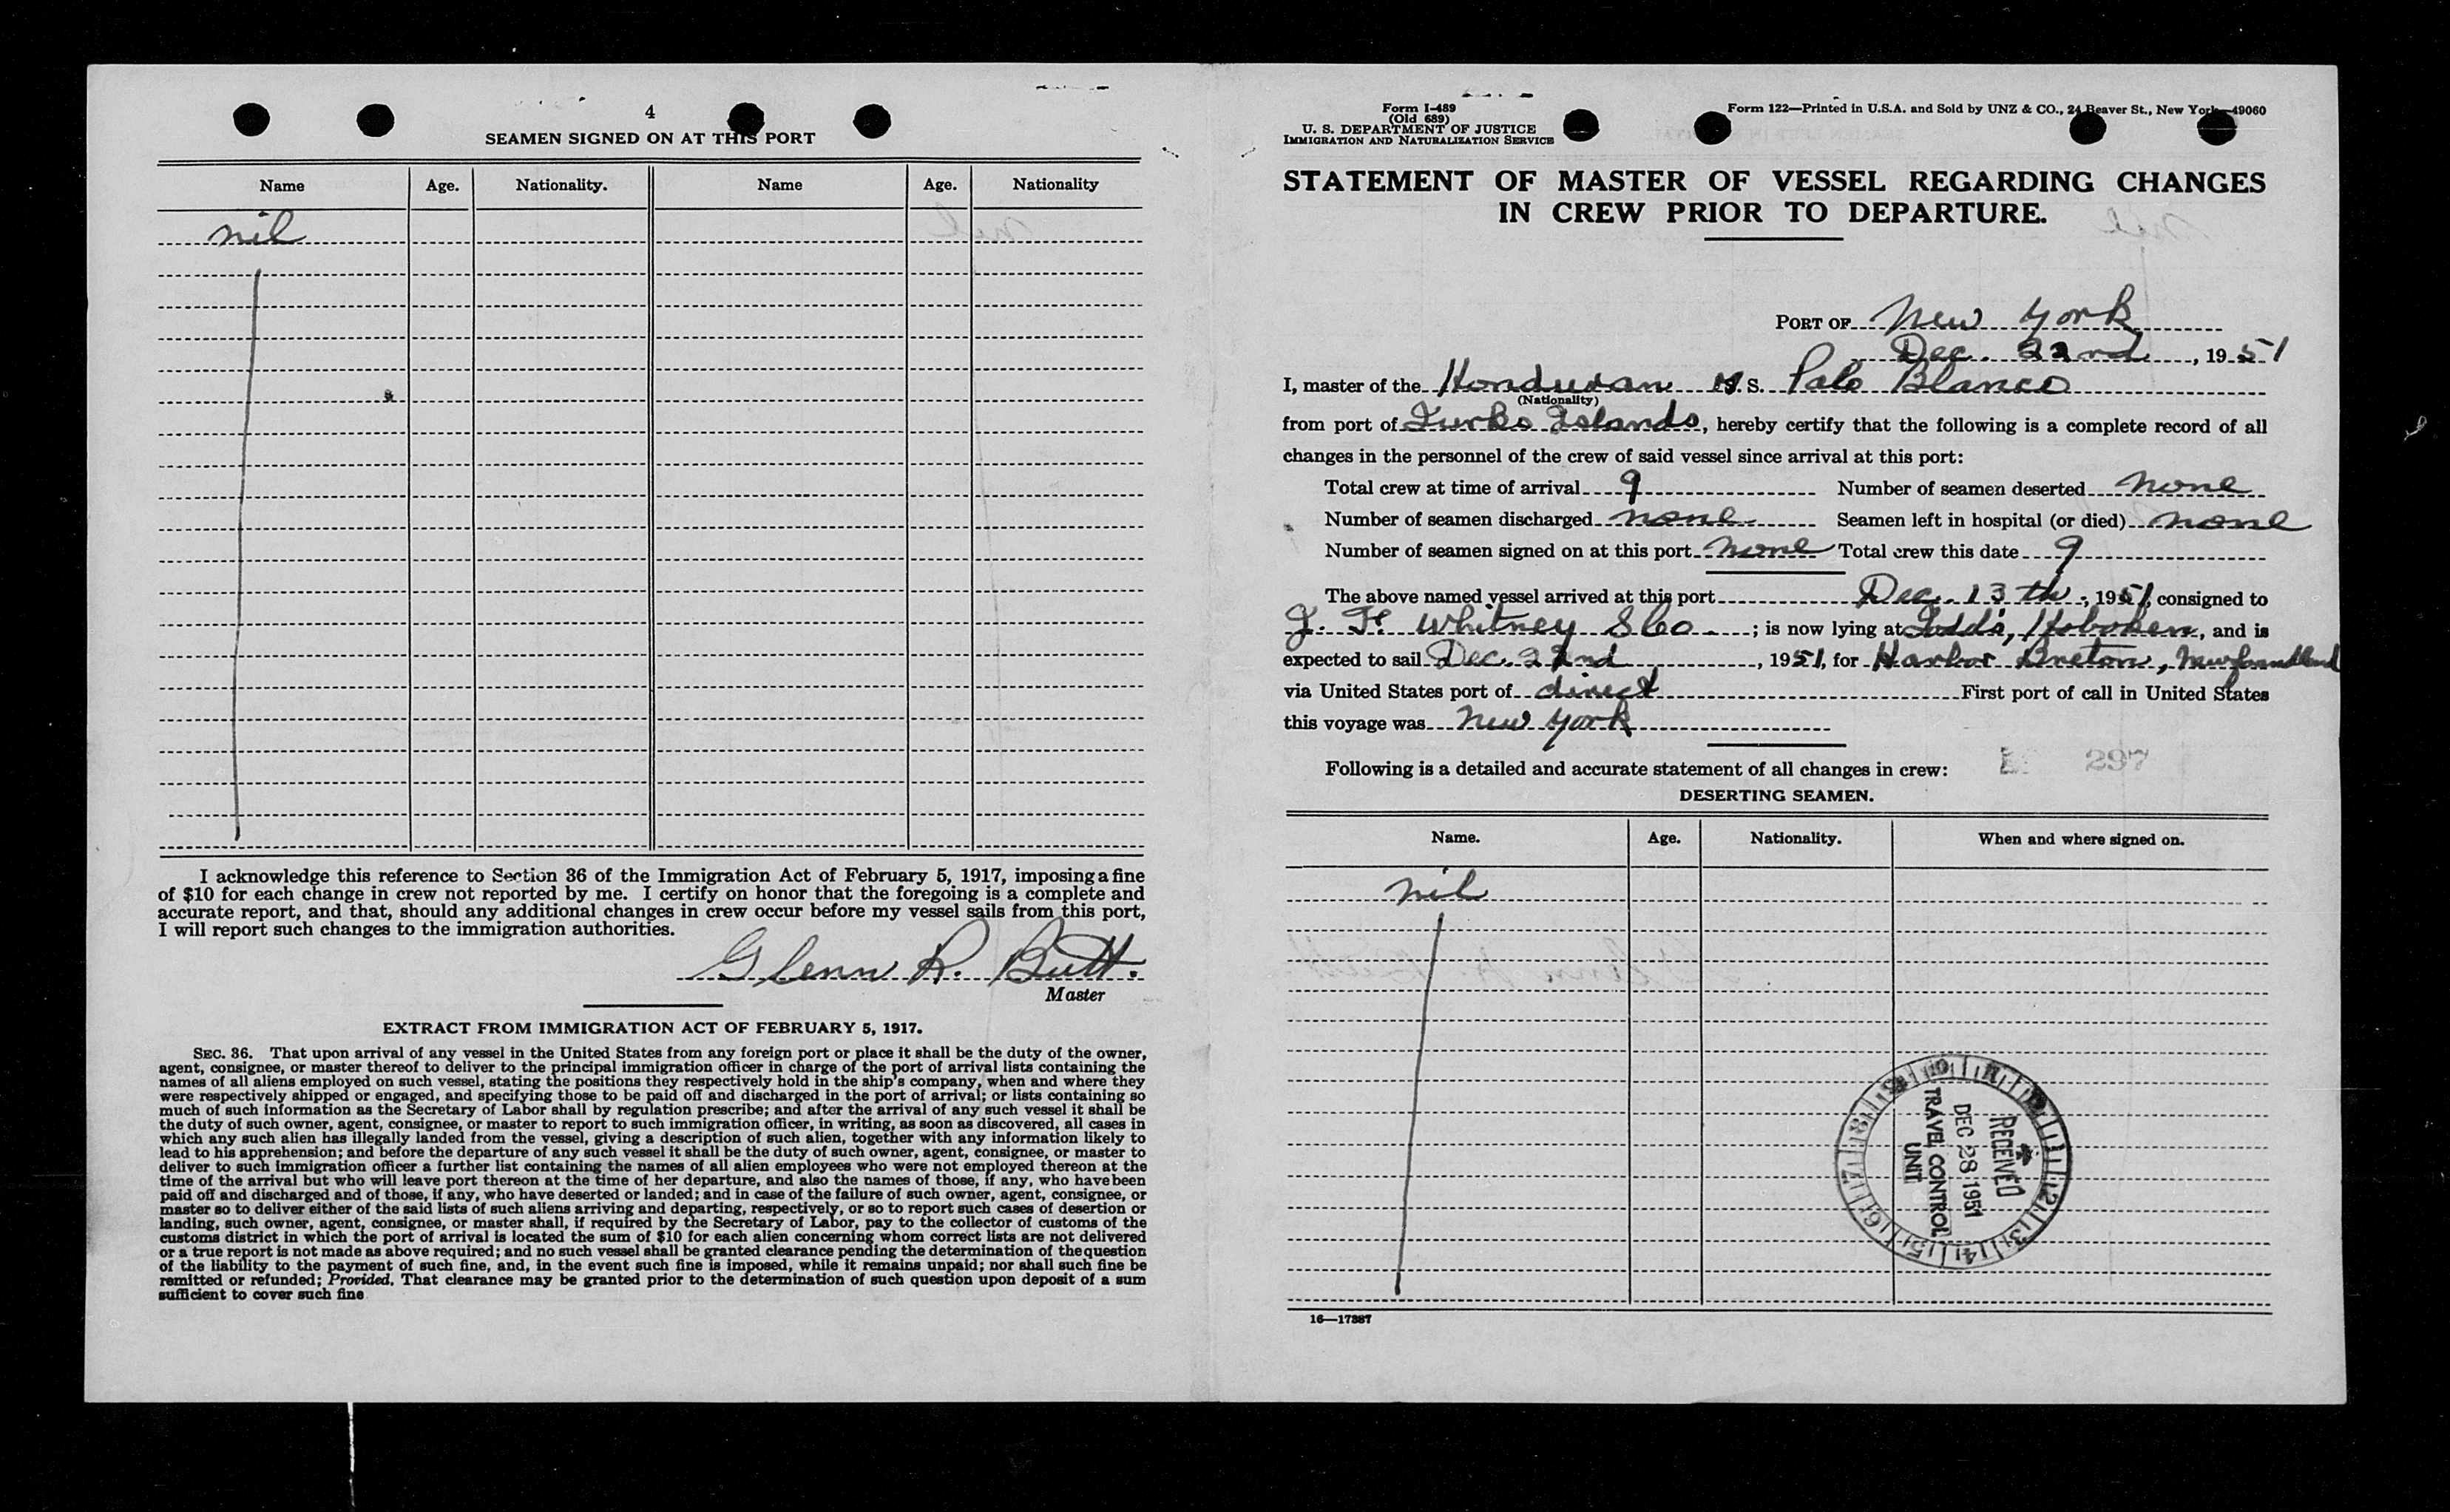 4
SEAMEN SIGNED ON AT THIS PORT
Name Age. Nationality. Name Age. Nationality
nil
I acknowledge this reference to Section 36 of the Immigration Act of February 5, 1917, imposing a fine
of $10 for each change in crew not reported by me. I certify on honor that the foregoing is a complete and
accurate report, and that, should any additional changes in crew occur before my vessel sails from this port,
I will report such changes to the immigration authorities.
Glenn R. Butt.
Master
EXTRACT FROM IMMIGRATION ACT OF FEBRUARY 5, 1917.
SEC. 36. That upon arrival of any vessel in the United States from any foreign port or place it shall be the duty of the owner,
agent, consignee, or master thereof to deliver to the principal immigration officer in charge of the port of arrival lists containing the
names of all aliens employed on such vessel, stating the positions they respectively hold in the ship's company, when and where they
were respectively shipped or engaged, and specifying those to be paid off and discharged in the port of arrival; or lists containing so
much of such information as the Secretary of Labor shall by regulation prescribe; and after the arrival of any such vessel it shall be
the duty of such owner, agent, consignee, or master to report to such immigration officer, in writing, as soon as discovered, all cases in
which any such alien has illegally landed from the vessel, giving a description of such alien, together with any information likely to
lead to his apprehension; and before the departure of any such vessel it shall be the duty of such owner, agent, consignee, or master to
deliver to such immigration officer a further list containing the names of all alien employees who were not employed thereon at the
time of the arrival but who will leave port thereon at the time of her departure, and also the names of those, if any, who have been
paid off and discharged and of those, if any, who have deserted or landed; and in case of the failure of such owner, agent, consignee, or
master so to deliver either of the said lists of such aliens arriving and departing, respectively, or so to report such cases of desertion or
landing, such owner, agent, consignee, or master shall, if required by the Secretary of Labor, pay to the collector of customs of the
customs district in which the port of arrival is located the sum of $10 for each alien concerning whom correct lists are not delivered
or a true report is not made as above required; and no such vessel shall be granted clearance pending the determination of the question
of the liability to the payment of such fine, and, in the event such fine is imposed, while it remains unpaid; nor shall such fine be
remitted or refunded; Provided, That clearance may be granted prior to the determination of such question upon deposit of a sum
sufficient to cover such fine
Form I-489
(Old 689)
U. S. DEPARTMENT OF JUSTICE
IMMIGRATION AND NATURALIZATION SERVICE
Form 122—Printed in U.S.A. and Sold by UNZ & CO., 24 Beaver St., New York—49060
STATEMENT OF MASTER OF VESSEL REGARDING CHANGES
IN CREW PRIOR TO DEPARTURE.
PORT OF New York
Dec. 22nd, 1951
I, master of the Honduran M.S. Palo Blanco
(Nationality)
from port of Turks Islands, hereby certify that the following is a complete record of all
changes in the personnel of the crew of said vessel since arrival at this port:
Total crew at time of arrival 9 Number of seamen deserted none
Number of seamen discharged none Seamen left in hospital (or died) none
Number of seamen signed on at this port none Total crew this date 9
The above named vessel arrived at this port Dec. 13th, 1951, consigned to
J. F. Whitney & Co. ; is now lying at Todds, Hoboken, and is
expected to sail Dec. 22nd, 1951, for Harbor Breton, Newfoundland
via United States port of direct First port of call in United States
this voyage was New York
Following is a detailed and accurate statement of all changes in crew: 297
DESERTING SEAMEN.
Name. Age. Nationality. When and where signed on.
nil
RECEIVED
DEC 28 1951
TRAVEL CONTROL
UNIT
16—17387